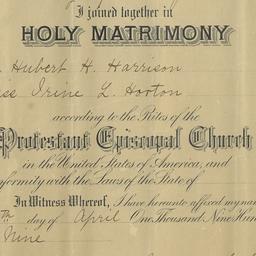 I joined together in
HOLY MATRIMONY
Hubert H. Harrison
iss Irine L. Horton
according to the Rites of the
Protestant Episcopal Church
in the United States of America, and
nformity with the Laws of the State of
In Witness Whereof, I have hereunto affixed my nam
th day of April One Thousand Nine Hun
Nine